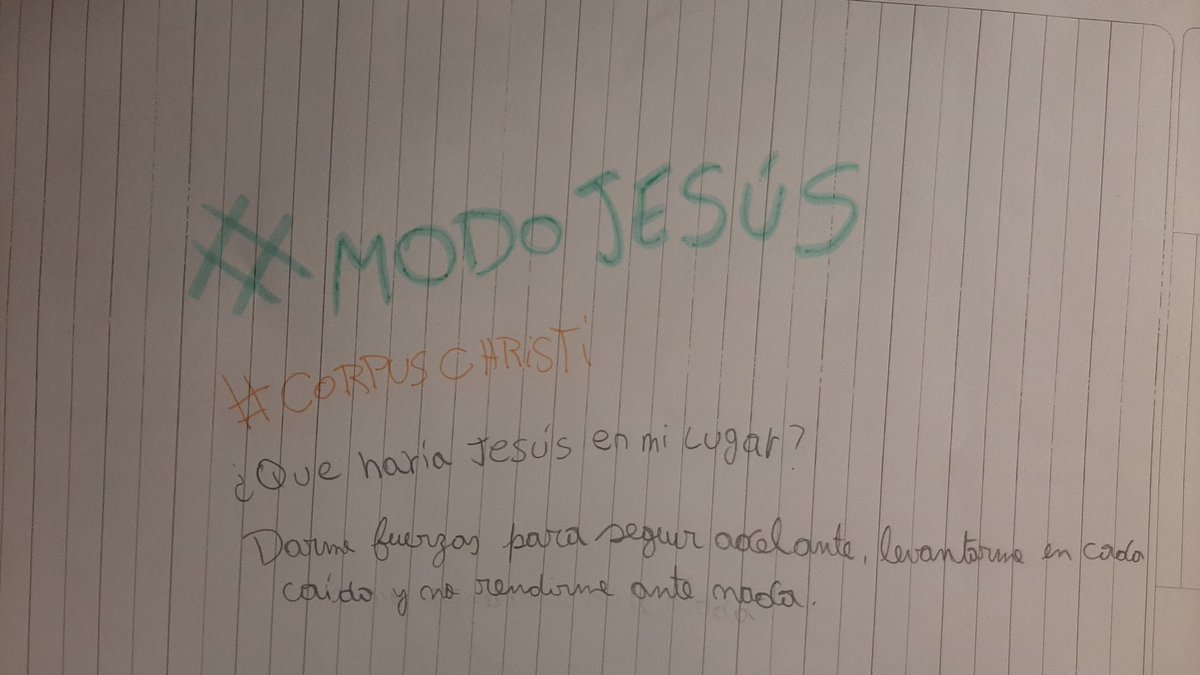 #MODO JESÚS
#CORPUS CHRISTI
¿Que haria Jesús en mi lugar?
Darme fuerzas para seguir adelante, levantarme en cada
caida y no rendirme ante nada.